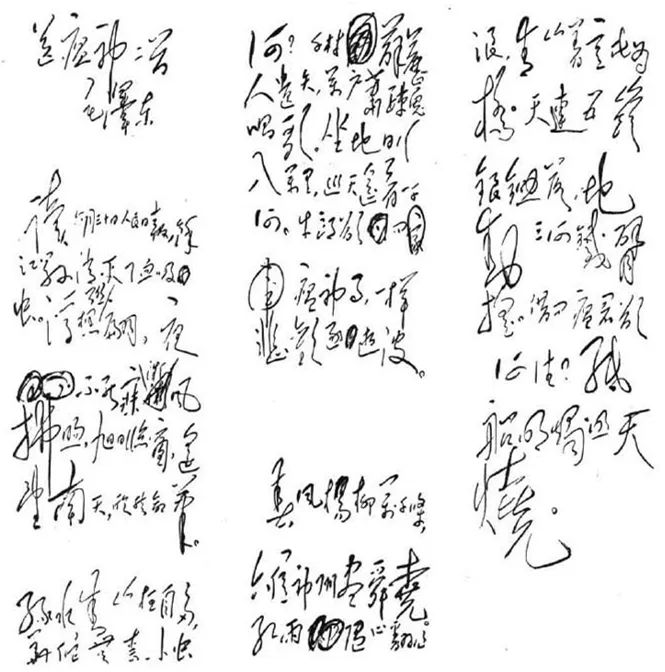 送瘟神二首
毛澤东
读六月三十日人民日報,餘
江縣消灭了血吸
虫。浮想联翩,夜
不能寐。微风
拂煦,旭日临窗,遥
望南天,欣然命筆。
绿水青山枉自多,
華佗無奈小虫
何?千村薜荔
人遗矢,萬户蕭疏鬼
唱歌。坐地日行
八萬里,巡天遥看一千
河。牛郎欲问
瘟神事,一样
悲歡逐逝波。
春风楊柳萬千條,
六億神州盡舜堯。
红雨随心翻作
浪,青山着意化為
橋。天連五嶺
銀鋤落,地
動三河鐵臂
摇。借问瘟君欲
何往?纸
船明燭照天
燒。